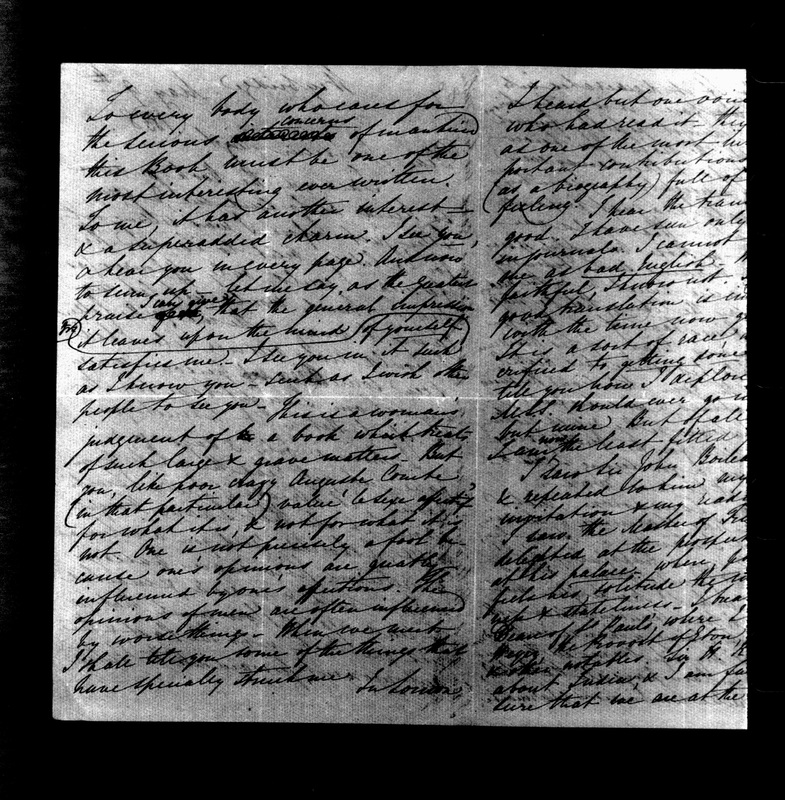 To every body who cares for
the serious concerns of mankind
this Book must be one of the
most interesting ever written.
To me, it has another interest -
& a superadded charm. I see you,
& hear you in every page. And now
to sum up - let me say as the greatest
praise I can give, that the general impression
it leaves upon the mind (of yourself)
satisfies me - I see you in it such
as I know you - such as I wish other
people to see you - This is a woman's
judgement of a book which treats
of such large & grave matters. But
you, like poor crazy Auguste Comte
(in that particular) value
for what it is, & not for what it is
not. One is not precisely a fool be
cause one's opinions are greatly
influenced by one's affections. The
opinions of men are often influenced
by worse things - When we meet
I shall tell you some of the things that
have specially struck me. In London,
I heard but one voice
who had read it they
as one of the most im
portant contributions
(as a biography) full of
feeling. I hear the tran
good. I have seen only
in journals. I cannot
me as bad English.
faithful, I know not.
good translation is
worth the time now
It is a sort of race
crificed to getting some
tell you how I deplore
should ever go
but mine. But of all
I am the least fitted
I saw Sir John Boileau
& repeated to him my
invitation & my
I saw the Master of Tri
delighted at the prospect
of his palace where
feel her solitude the
ness & stateliness - I
Dean of St Paul's where I
the Provost of Eton
notables. Sir H
about India, & I am
sure that we are at the